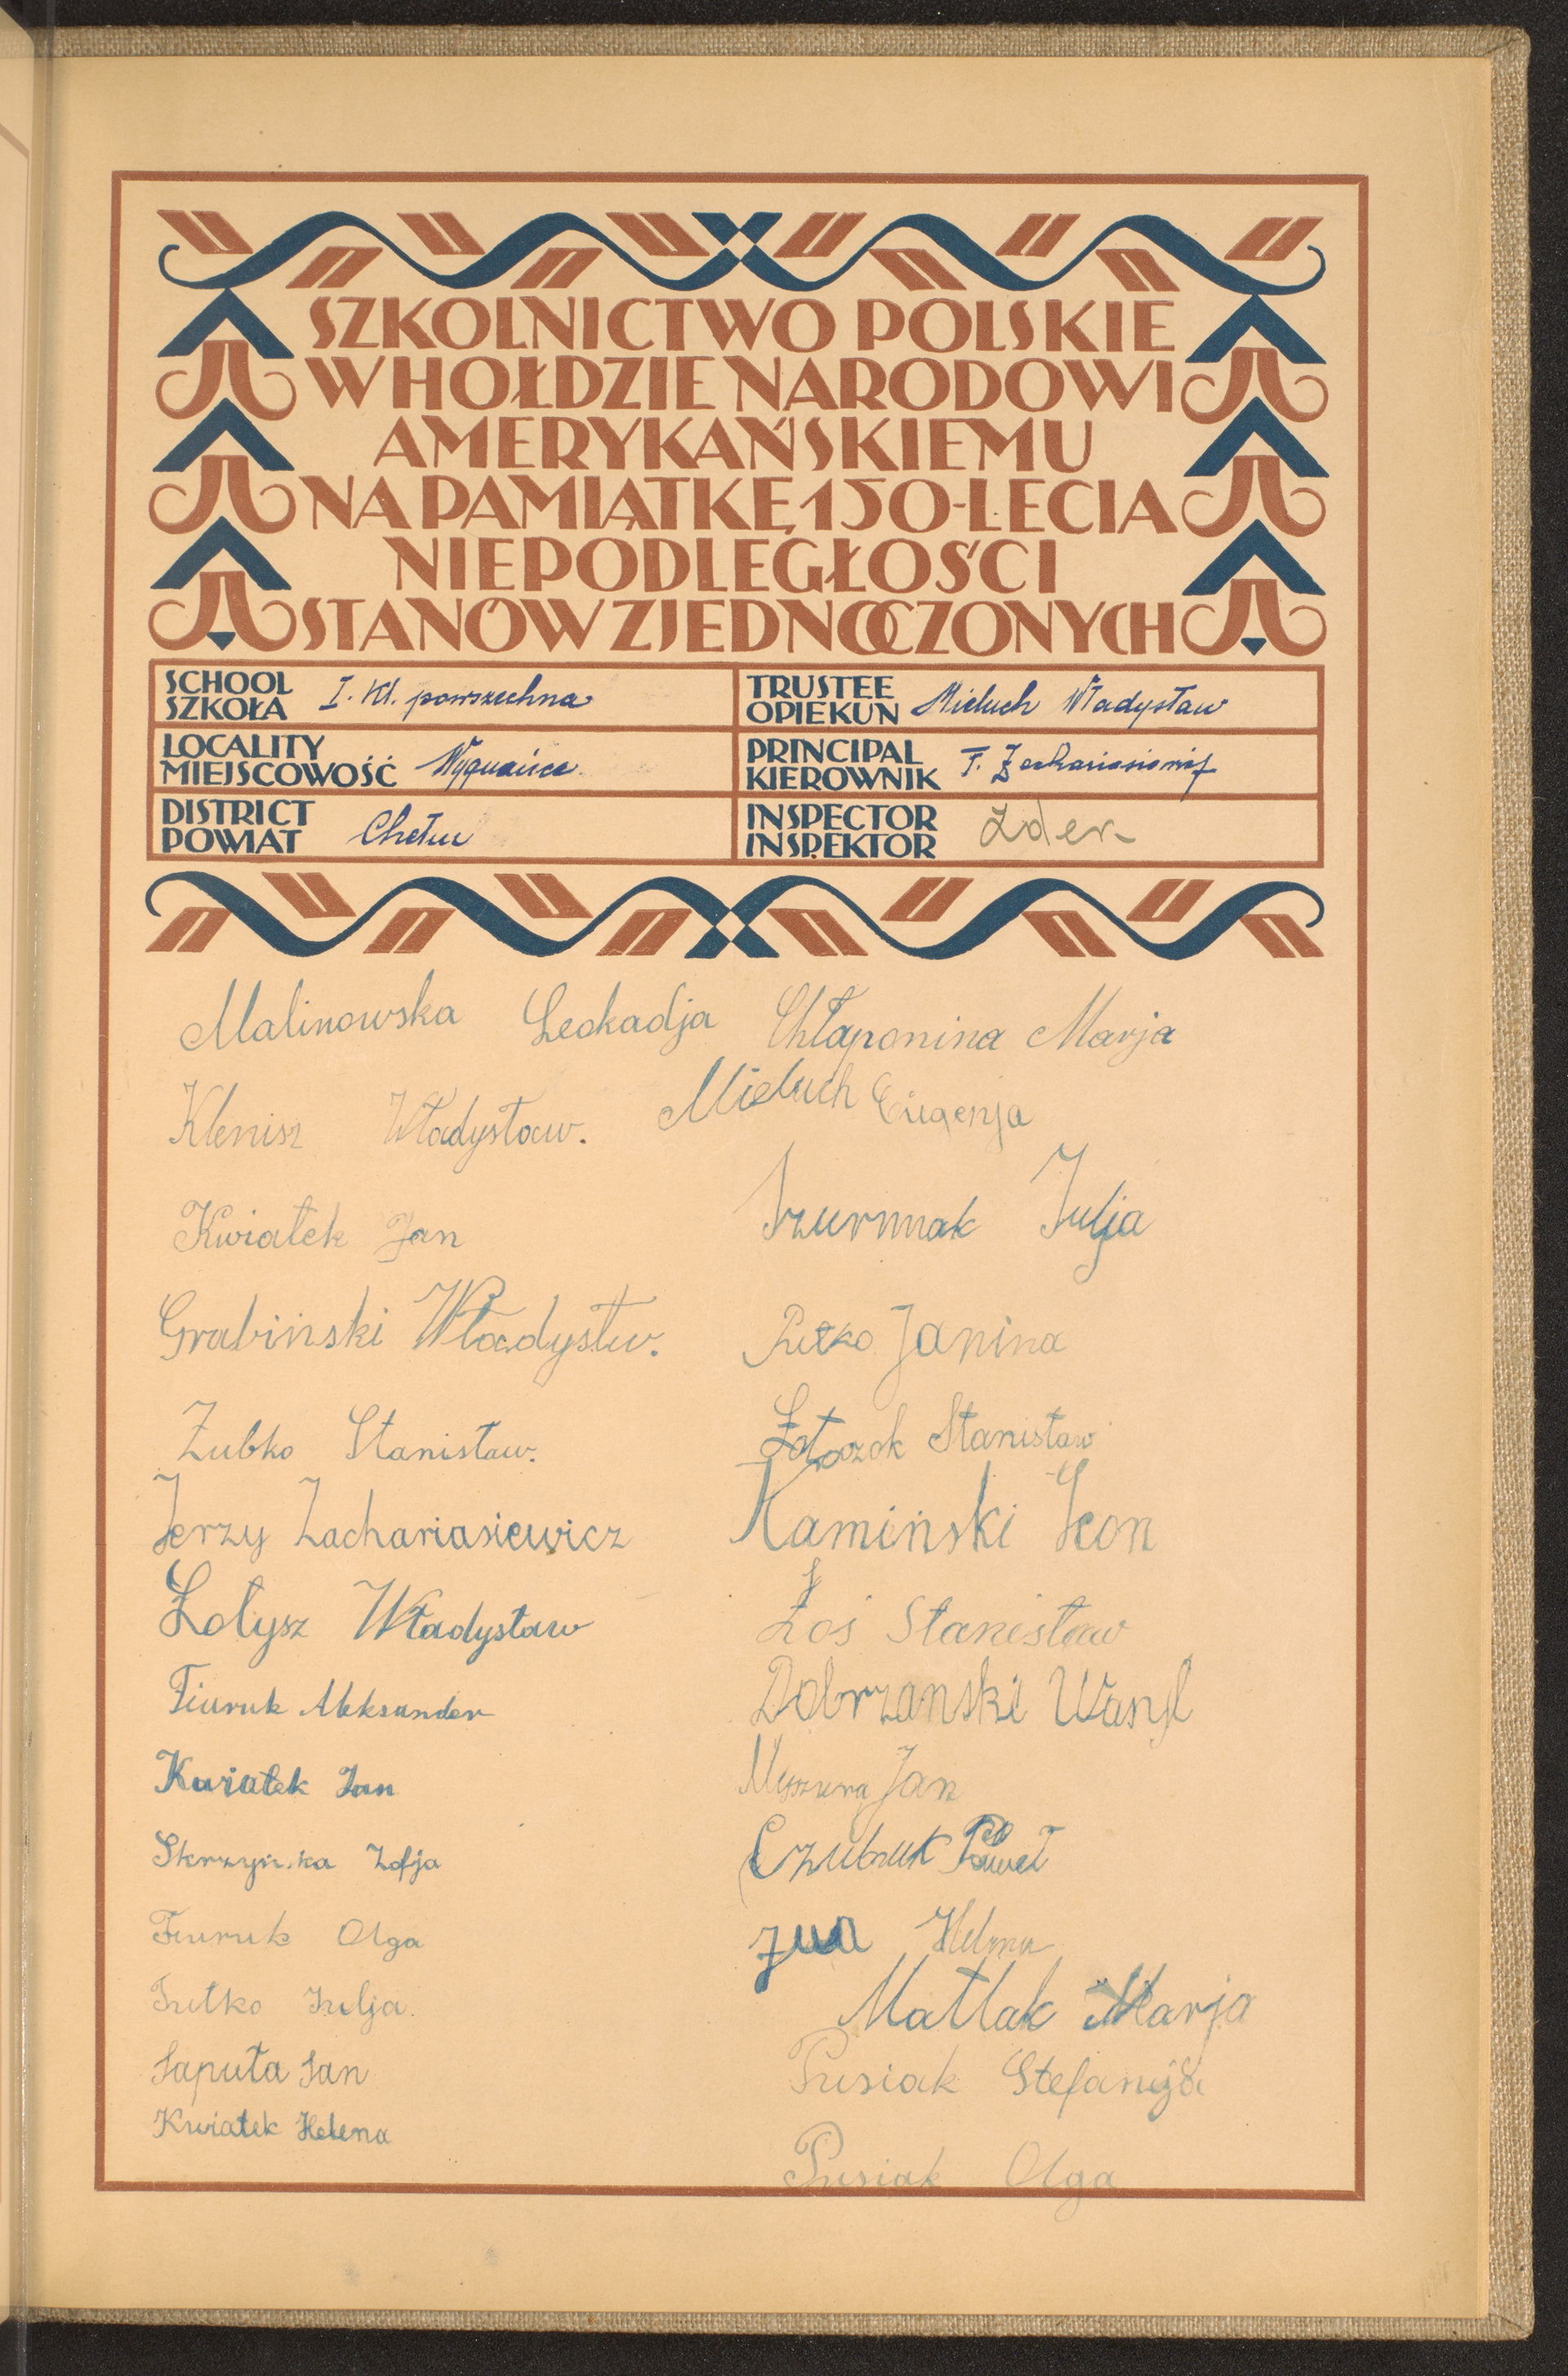 SZKOLNICTWO POLSKIE
W HOŁDZIE NARODOWI
AMERYKAŃSKIEMU
NA PAMIĄTKĘ 150-LECIA
NIEPODLEGŁOŚCI
STANÓW ZJEDNOCZONYCH
SCHOOL
SZKOŁA I. Kl. powszechna
TRUSTEE
OPIEKUN Mieluch Władysław
LOCALITY
MIEJSCOWOŚĆ Wygnańce
PRINCIPAL
KIEROWNIK T. Zachariasiewicz
DISTRICT
POWIAT Chełm
INSPECTOR
INSPEKTOR
Malinowska Leokadja
Chłaponina Marja
Klenisz Władysław.
Mieluch Eugenja
Kwiatek Jan
Szurmak Julja
Grabiński Władysłw.
Janina
Zubko Stanisław.
Stanisław
Jerzy Zachariasiewicz
Kamiński Leon
Łotysz Władysław
Łoś Stanisław
Fiuruk Aleksander
Dobrzanski Wasyl
Kwiatek Jan
Jan
Skrzyńska Zofja
Czubruk Paweł
Fiuruk Olga
Julja.
Matlak Marja
Saputa Jan
Prusiak
Kwiatek Helena
Prusiak Olga